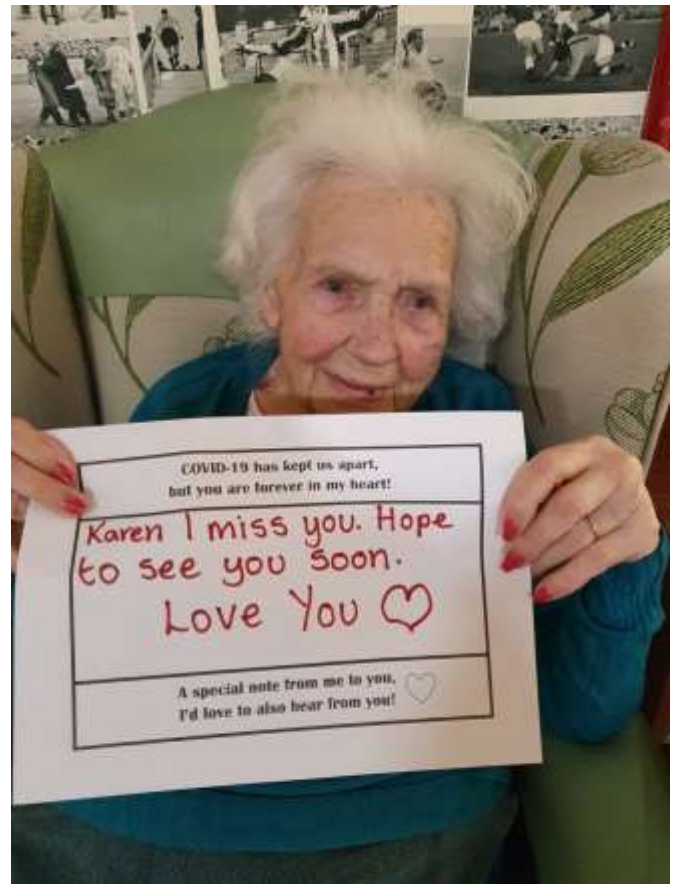 COVID-19 has kept us apart,
but you are forever in my heart!
Karen I miss you. Hope
to see you soon.
Love You ♡
A special note from me to you,
I'd love to also hear from you!